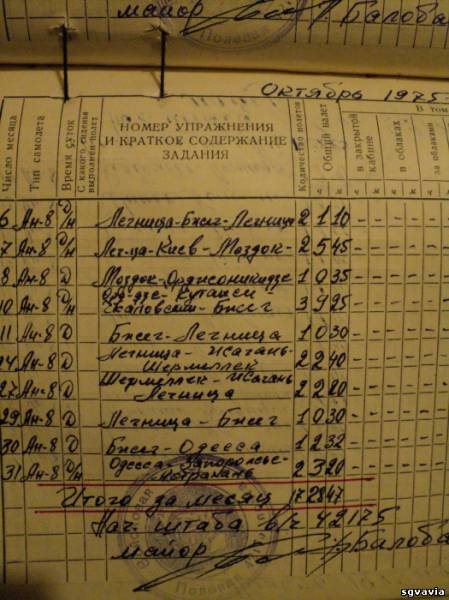 майор Балова
Октябрь 1975
В том
Число месяца
Тип самолета
Время суток
С какого сиденья выполнен полет
НОМЕР УПРАЖНЕНИЯ
И КРАТКОЕ СОДЕРЖАНИЕ
ЗАДАНИЯ
Количество полетов
Общий налет
в закрытой кабине
в облаках
за облаками
ч м ч м ч м ч
6 Ан-8 Д/Н Легница-Бжег-Легница 2 1 10 - - - - -
7 Ан-8 Д/Н Лег-ца-Киев-Моздок- 2 5 45 - - - - -
8 Ан-8 Д Моздок-Орджоникидзе 1 0 35 - - - - -
Орд-дзе-Кутаиси
10 Ан-8 Д/Н Чкаловский-Бжег 3 9 25 - - - - -
11 Ан-8 Д Бжег-Легница 1 0 30 - - - - -
Легница-
24 Ан-8 Д 2 2 40 - - - - -
27 Ан-8 Д 2 2 20 - - - - -
Легница
29 Ан-8 Д Легница-Бжег 1 0 30 - - - - -
30 Ан-8 Д Бжег-Одесса 1 2 32 - - - - -
Одесса-Запорожье-
31 Ан-8 Д/Н Астрахань 2 3 20 - - - - -
Итого за месяц 17 28 47
Нач. штаба в/ч 42175
майор Балова
sgvavia